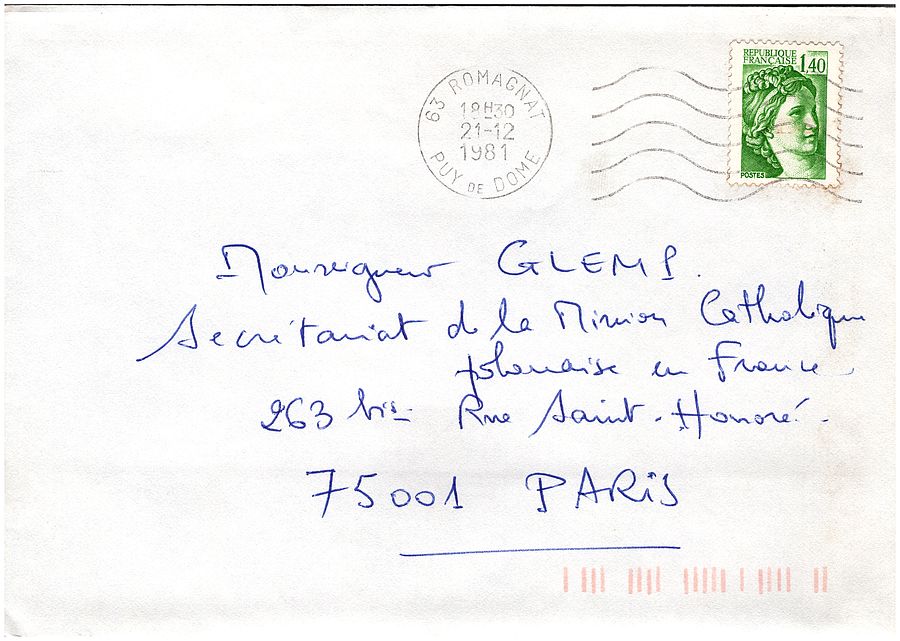 63 ROMAGNAT
18H30
21-12
1981
PUY DE DOME
REPUBLIQUE
FRANÇAISE 1,40
POSTES
Monseigneur GLEMP.
Secrétariat de la Mission Catholique
polonaise en France
263 bis Rue Saint-Honoré
75001 PARIS